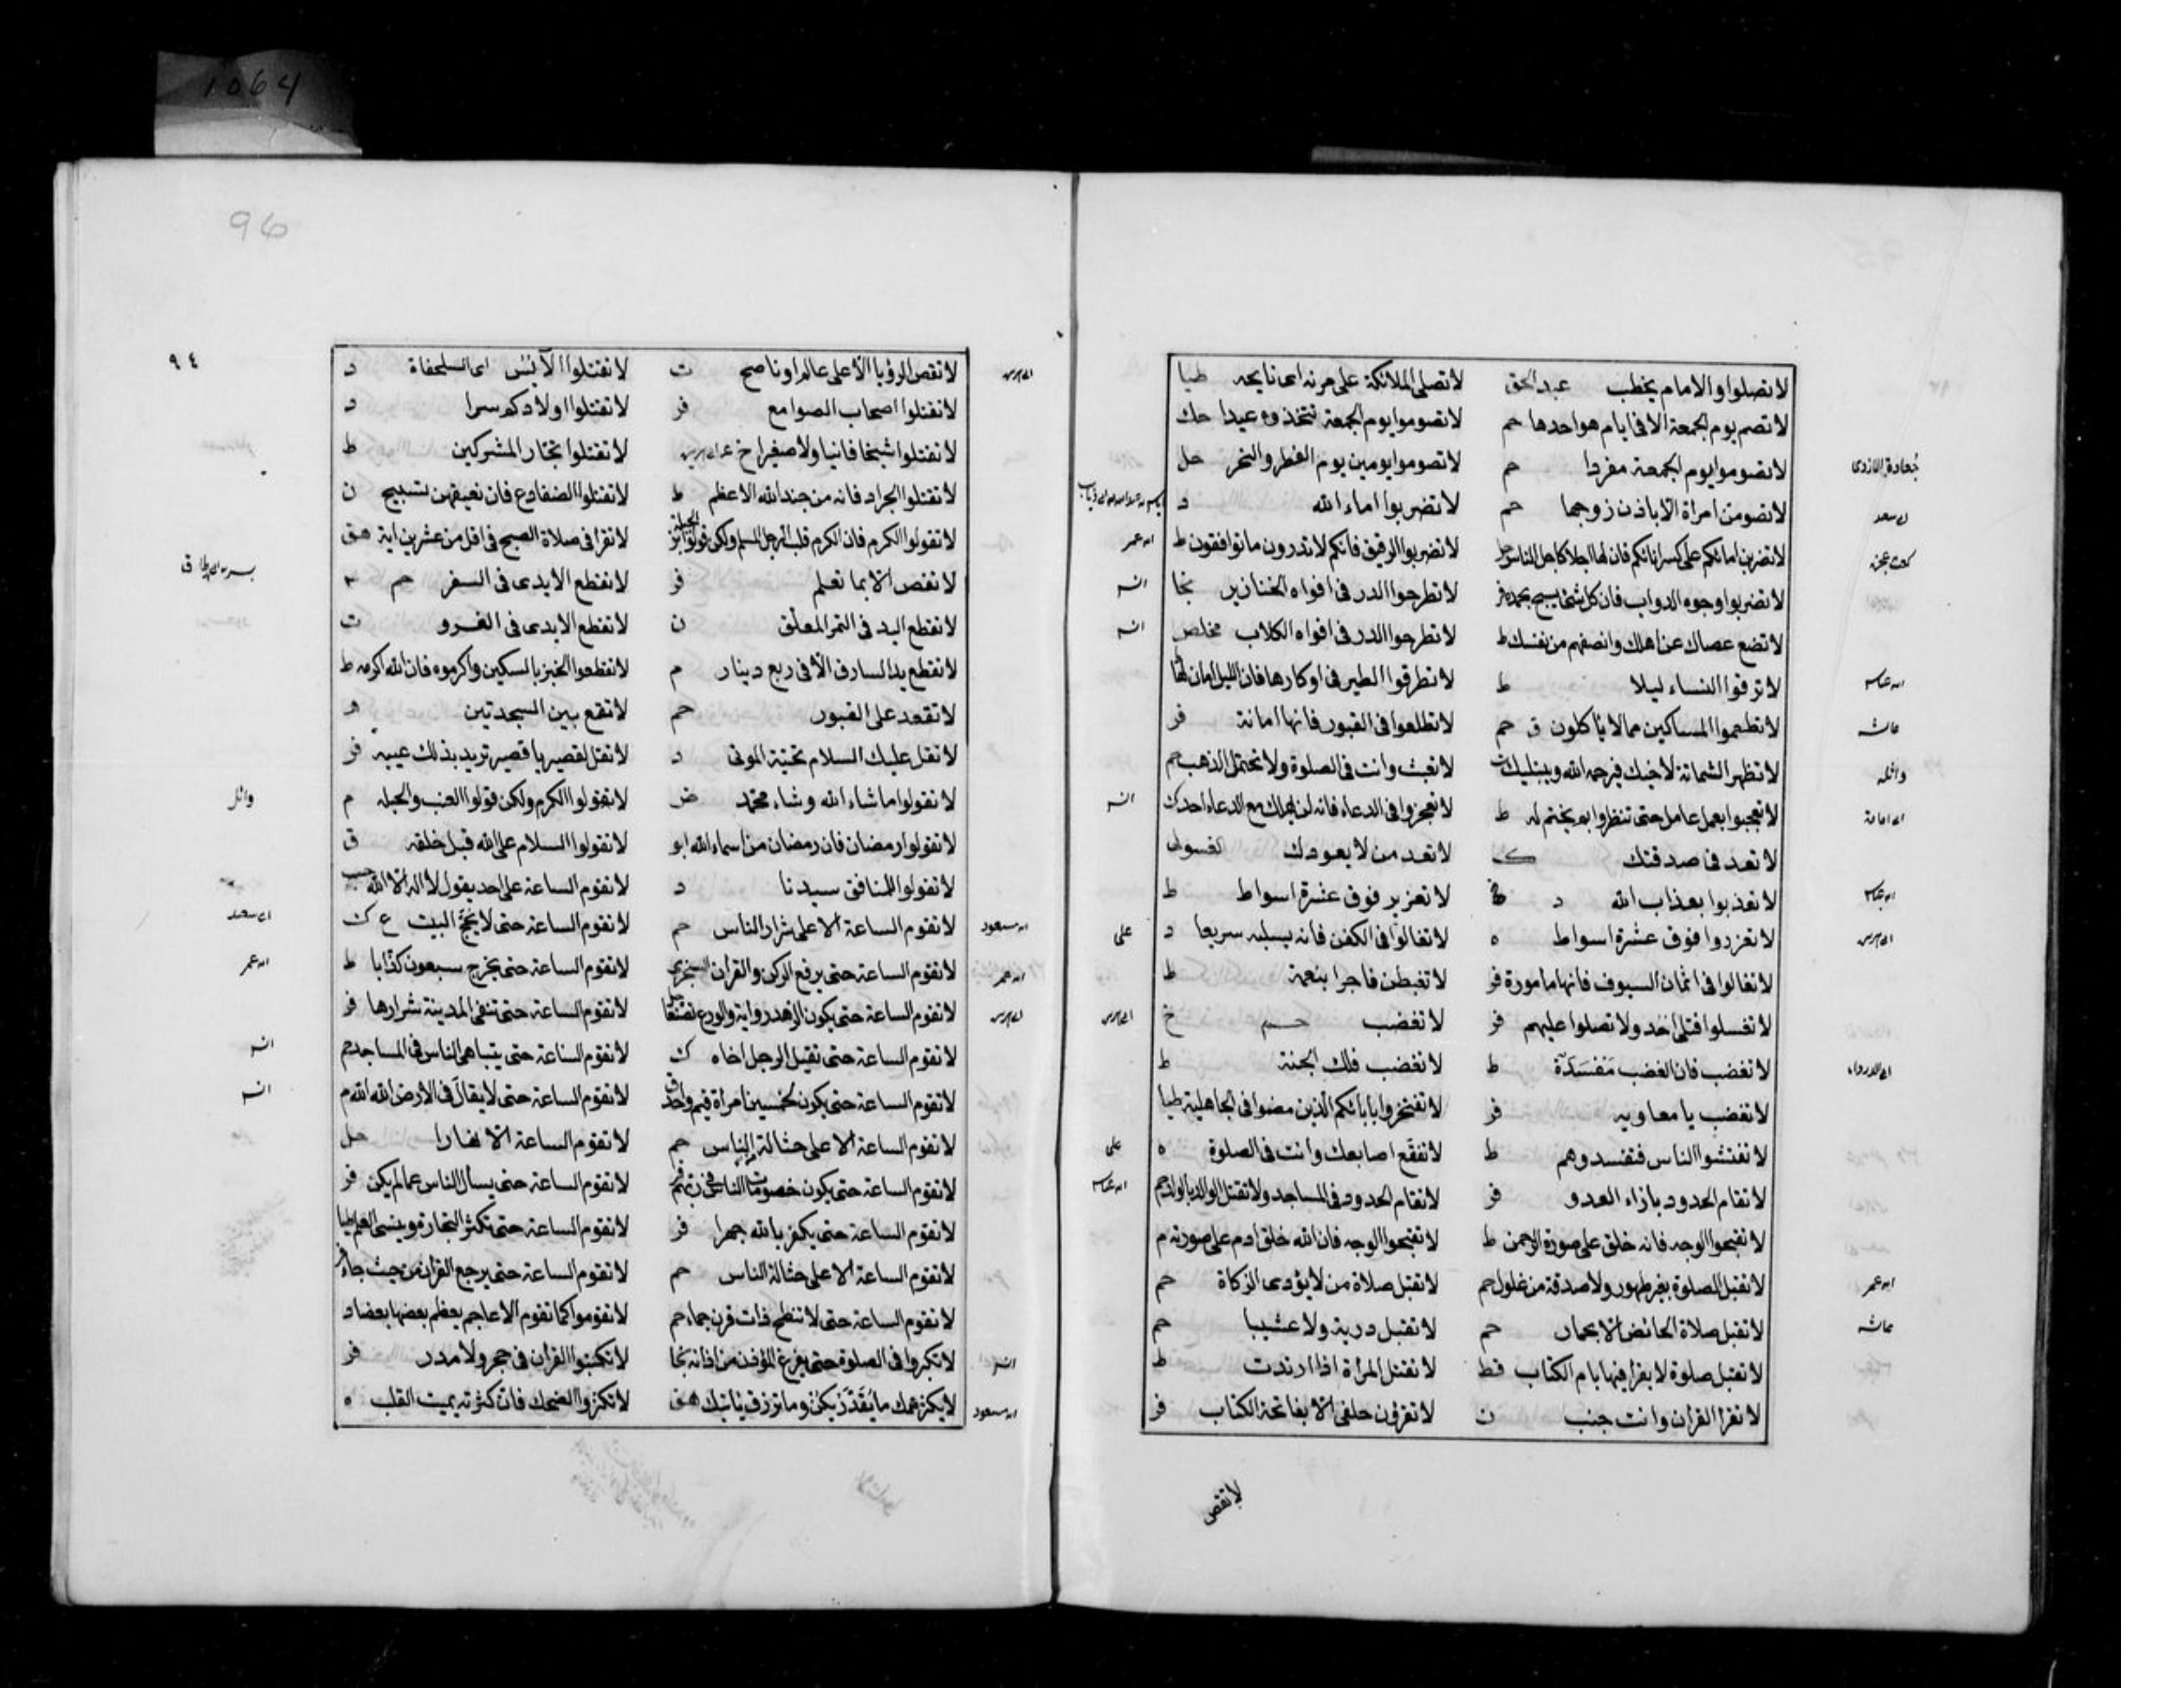 1064
96
لا تصلوا والامام يخطب عبد الحق لا تصلى الملائكة على مرنة اى نايحة طيا
لا تصم يوم الجمعة الا فى ايام هو احدها حم لا تصوموا يوم الجمعة تتخذوه عيدا حك
جنادة الازدى لا تصوموا يوم الجمعة مفردا حم لا تصوموا يومين يوم الفطر والنحر حل
لا تصومن امراة الا باذن زوجها حم لا تضربوا اماء الله د
لا تضربن امائكم على كسر انائكم فان لها اجلا كاجل الناس لا تضربوا الرقيق فانكم لا تدرون ما توافقون ط ابن عمر
لا تضربوا وجوه الدواب فان كل شئ يسبح بحمده لا تطرحوا الدر فى افواه الخنازير نجا
لا تضع عصاك عن اهلك وانصفهم من نفسك ط لا تطرحوا الدر فى افواه الكلاب مخلص
لا ترقوا النساء ليلا ط لا تطرقوا الطير فى اوكارها فان الليل امان لها
لا تطعموا المساكين مما لا ياكلون ق حم لا تطلعوا فى القبور فانها امانة فر
واثلة لا تظهر الشماتة لاخيك فيرحمه الله ويبتليك لا تعبث وانت فى الصلوة ولا تختم الذهب حم
لا تعجبوا بعمل عامل حتى تنظروا بم يختم له ط لا تعجزوا فى الدعاء فانه لن يهلك مع الدعاء احد ك
لا تعد فى صدقتك لا تعد من لا يعودك
لا تعذبوا بعذاب الله د لا تعزير فوق عشرة اسواط ط
لا تعزروا فوق عشرة اسواط ه لا تغالوا فى الكفن فانه يسلبه سريعا د على
لا تغالوا فى اثمان السيوف فانها مامورة فر لا تغبطن فاجرا بنعمة ط
لا تغسلوا قتلى احد ولا تصلوا عليهم فر لا تغضب حم خ
لا تغضب فان الغضب مفسدة ط لا تغضب فلك الجنة ط
لا تغضب يا معاوية فر لا تفتخروا بابائكم الذين مضوا فى الجاهلية طيا
لا تفتشوا الناس فتفسدوهم ط لا تفقع اصابعك وانت فى الصلوة ه على
لا تقام الحدود بازاء العدو فر لا تقام الحدود فى المساجد ولا تقتل الوالد بالولد حم
لا تقبحوا الوجه فانه خلق على صورة الرحمن ط لا تقبحوا الوجه فان الله خلق ادم على صورته م
ابن عمر لا تقبل الصلوة بغير طهور ولا صدقة من غلول حم لا تقبل صلاة من لا يؤدى الزكاة حم
لا تقبل صلاة الحائض الا بخمار حم لا تقبل درية ولا عشيبا حم
لا تقبل صلوة لا يقرا فيها بام الكتاب قط لا تقتل المراة اذا ارتدت ط
لا تقرا القران وانت جنب ن لا تقرؤن خلفى الا بفاتحة الكتاب فر
لا تقص
٩٤
لا تقص الرؤيا الا على عالم او ناصح ت لا تقتلوا الانس اى السلحفاة د
لا تقتلوا اصحاب الصوامع فر لا تقتلوا اولادكم سرا د
لا تقتلوا شيخا فانيا ولا صغيرا خ لا تقتلوا بتجار المشركين ط
لا تقتلوا الجراد فانه من جند الله الاعظم ط لا تقتلوا الضفادع فان نعيقهن تسبيح ن
لا تقولوا الكرم فان الكرم قلب الرجل المسلم ولكن قولوا لا تقرا فى صلاة الصبح فى اقل من عشرين اية هق
لا تقص الا بما تعلم فر لا تقطع الايدى فى السفر حم
لا تقطع اليد فى التمر المعلق ن لا تقطع الايدى فى الغزو ت
لا تقطع يد السارق الا فى ربع دينار م لا تقطعوا الخبز بالسكين واكرموه فان الله اكرمه ط
لا تقعد على القبور حم لا تقع بين السجدتين ه
لا تقل عليك السلام تحية الموتى د لا تقل لقصير يا قصير تريد بذلك عيبه فر
لا تقولوا ما شاء الله وشاء محمد ض لا تقولوا الكرم ولكن قولوا العنب والحبلة م وائل
لا تقولوا رمضان فان رمضان من اسماء الله ابو لا تقولوا السلام على الله قبل خلقه ق
لا تقولوا للمنافق سيدنا د لا تقوم الساعة على احد يقول لا اله الا الله
ابن مسعود لا تقوم الساعة الا على شرار الناس حم لا تقوم الساعة حتى لا يحج البيت ع ك
ابن عمر لا تقوم الساعة حتى يرفع الركن والقران السجزى لا تقوم الساعة حتى يخرج سبعون كذابا ط ابن عمر
لا تقوم الساعة حتى يكون الزهد رواية والورع تصنعا لا تقوم الساعة حتى تنفى المدينة شرارها فر
لا تقوم الساعة حتى تقيل الرجل اخاه ك لا تقوم الساعة حتى يتباهى الناس فى المساجد حم
لا تقوم الساعة حتى يكون لخمسين امراة قيم واحد لا تقوم الساعة حتى لا يقال فى الارض الله الله م
لا تقوم الساعة الا على حثالة الناس حم لا تقوم الساعة الا نهارا حل
لا تقوم الساعة حتى يكون خصومات الناس فى ربهم لا تقوم الساعة حتى يسأل الناس عما لم يكن فر
لا تقوم الساعة حتى يكفر بالله جهرا فر لا تقوم الساعة حتى تكثر التجارة وينسى العلم طيا
لا تقوم الساعة الا على حثالة الناس حم لا تقوم الساعة حتى يرجع القران من حيث جاء
لا تقوم الساعة حتى لا تنطح ذات قرن جماء حم لا تقوموا كما تقوم الاعاجم يعظم بعضها بعضا د
لا تكبروا فى الصلوة حتى يفرغ المؤذن من اذانه نجا لا تكتبوا القران فى حجر ولا مدر فر
ابن مسعود لا يكثر همك ما يقدر يكن وما ترزق ياتيك هق لا تكثروا الضحك فان كثرته يميت القلب ه